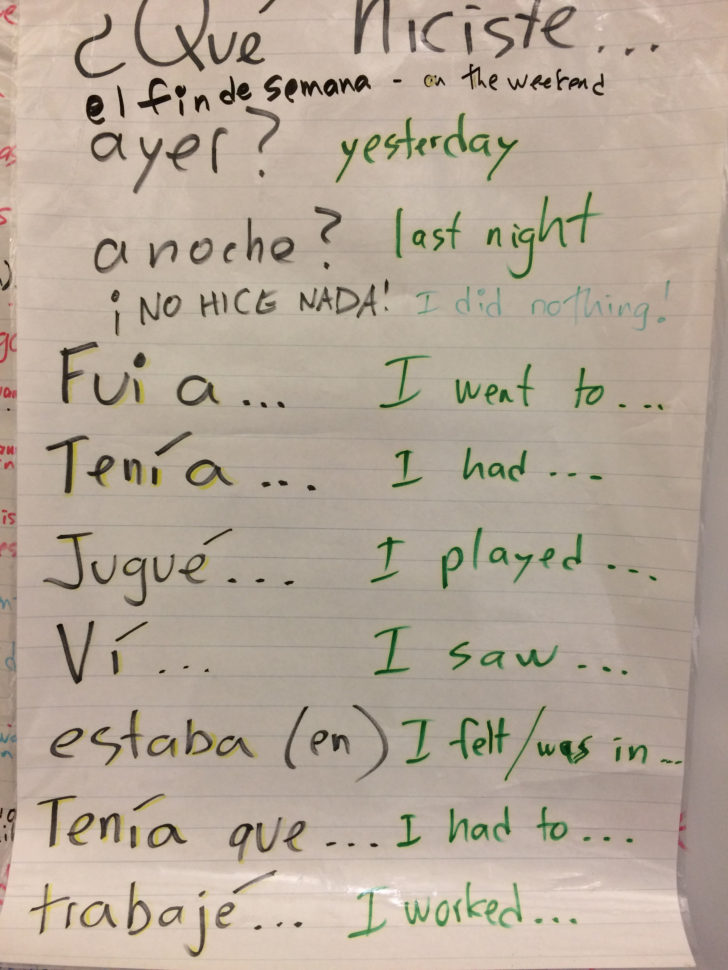 ¿Qué hiciste...
el fin de semana - on the weekend
ayer? yesterday
anoche? last night
¡NO HICE NADA! I did nothing!
Fui a... I went to...
Tenía... I had...
Jugué... I played...
Ví... I saw...
estaba (en) I felt/was in...
Tenía que... I had to...
trabajé... I worked...